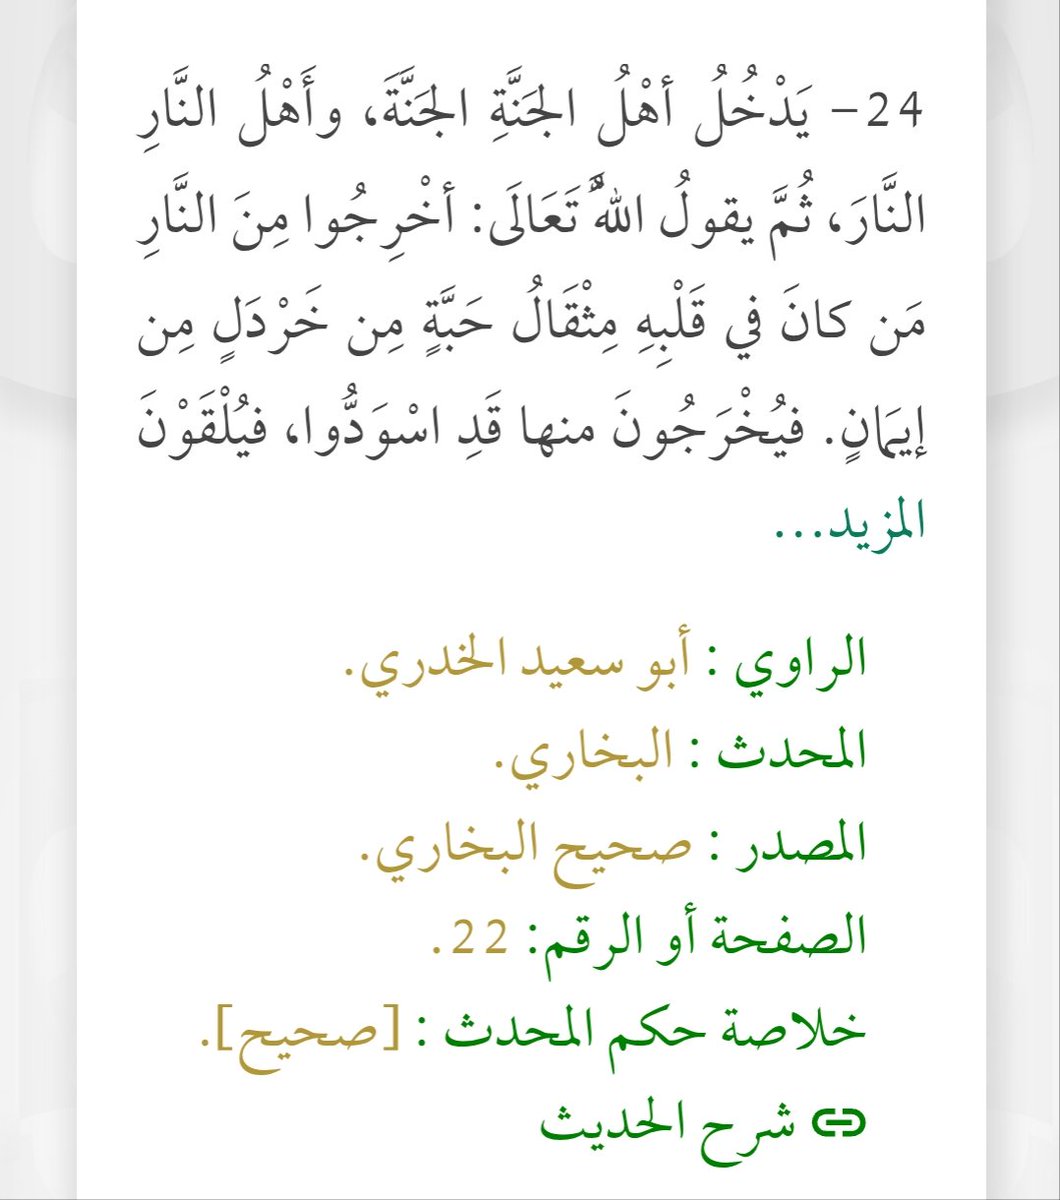 24- يَدْخُلُ أهْلُ الجَنَّةِ الجَنَّةَ، وأَهْلُ النَّارِ
النَّارَ، ثُمَّ يقولُ اللهُ تَعَالَى: أخْرِجُوا مِنَ النَّارِ
مَن كانَ في قَلْبِهِ مِثْقَالُ حَبَّةٍ مِن خَرْدَلٍ مِن
إيمَانٍ. فيُخْرَجُونَ منها قَدِ اسْوَدُّوا، فيُلْقَوْنَ
المزيد...
الراوي : أبو سعيد الخدري.
المحدث : البخاري.
المصدر : صحيح البخاري.
الصفحة أو الرقم: 22.
خلاصة حكم المحدث : [صحيح].
شرح الحديث